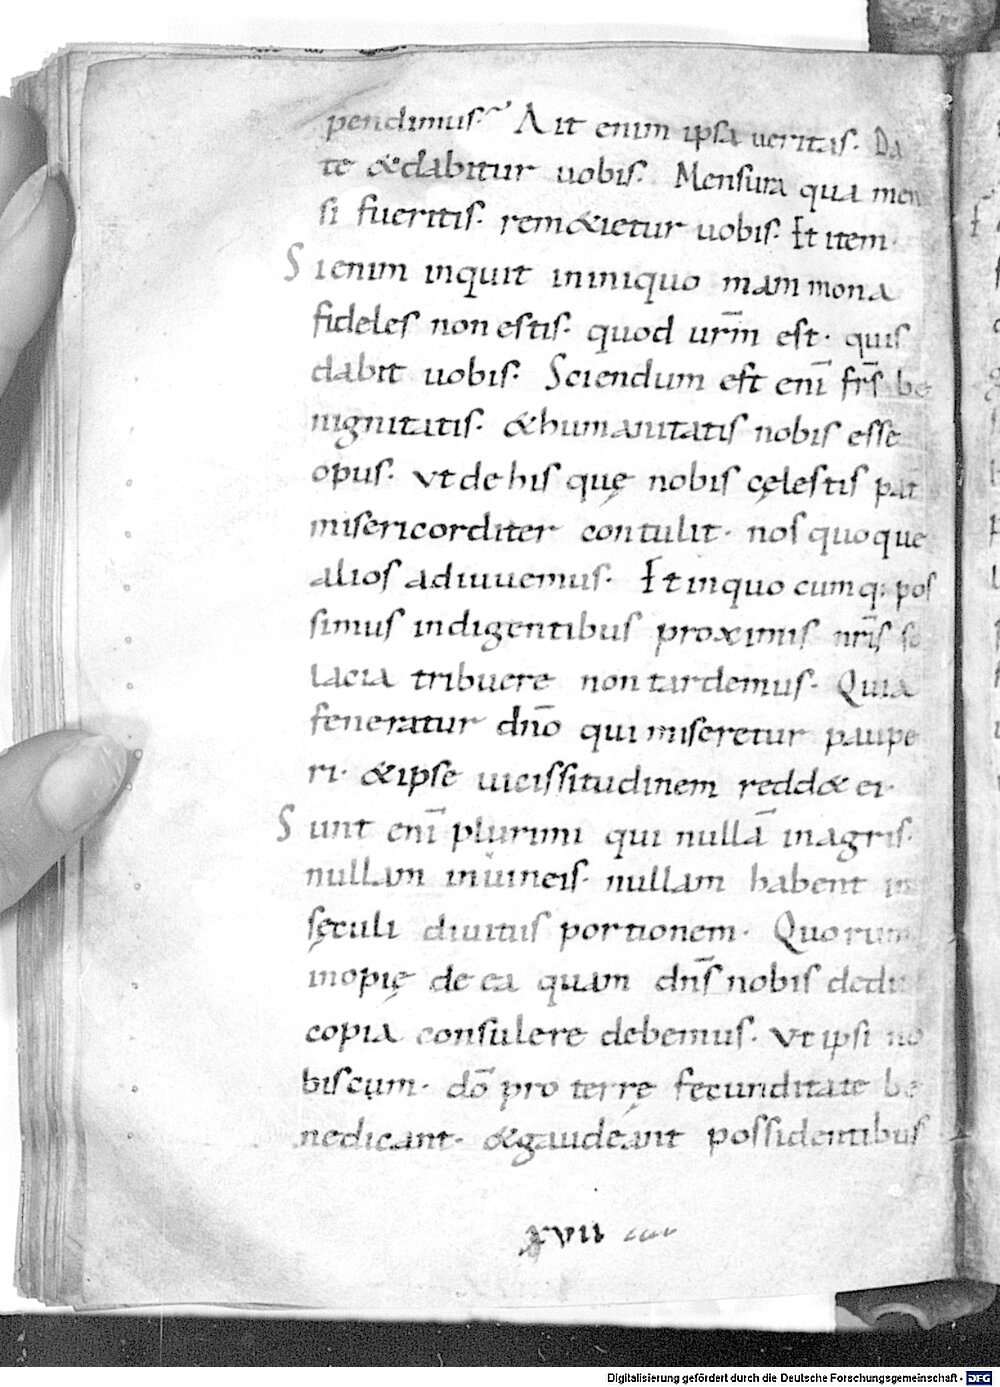 pendimus. Ait enim ipsa ueritas. Da
te &dabitur uobis. Mensura qua men
si fueritis. rem&ietur uobis. Et item.
Si enim inquit in iniquo mammona
fideles non estis. quod urm̅ est. quis
dabit uobis. Sciendum est eni̅ fr̅s be
nignitatis. &humanitatis nobis esse
opus. vt de his quę nobis cęlestis pat̅
misericorditer contulit. nos quoque
alios adiuuemus. Et in quocumq; pos
simus indigentibus proximis nr̅is so
lacia tribuere non tardemus. Quia
feneratur dn̅o qui miseretur paupe
ri. &ipse uicissitudinem redd& ei.
Sunt eni̅ plurimi qui nulla̅ in agris.
nullam in uineis. nullam habent in
sęculi diuitiis portionem. Quorum
inopię de ea quam dn̅s nobis dedit
copia consulere debemus. vt ipsi no
biscum. do̅ pro terrę fecunditate be
nedicant. &gaudeant possidentibus
xvii
Digitalisierung gefördert durch die Deutsche Forschungsgemeinschaft - DFG